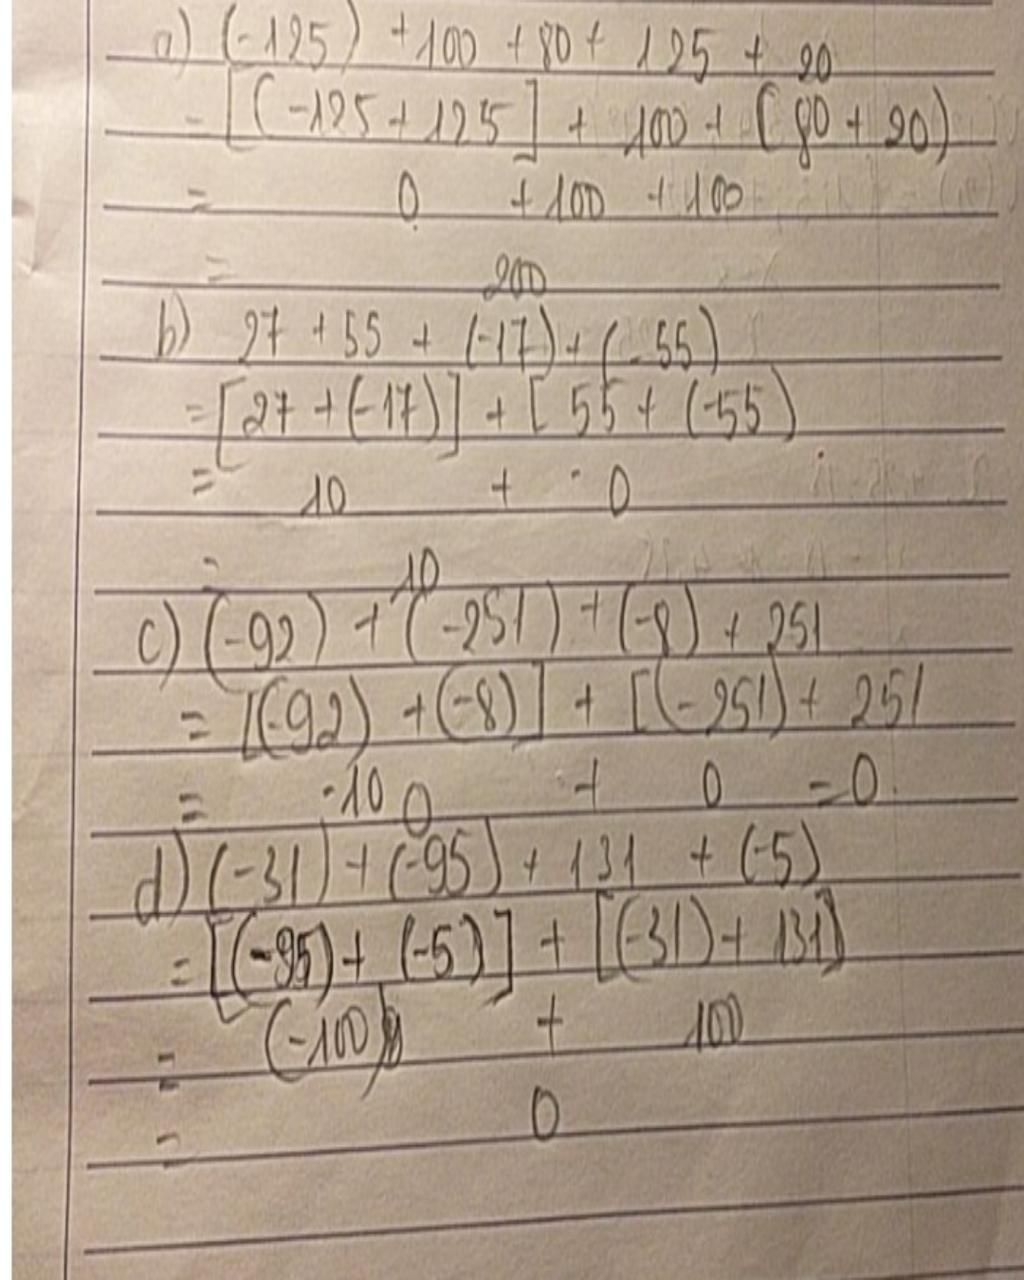 a) (-125) + 100 + 80 + 125 + 20
= [(-125 + 125] + 100 + (80 + 20)
= 0 + 100 + 100
= 200
b) 27 + 55 + (-17) + (-55)
= [27 + (-17)] + [55 + (-55)
= 10 + 0
= 10
c) (-92) + (-251) + (-8) + 251
= [(-92) + (-8)] + [(-251) + 251
= -100 + 0 = 0
d) (-31) + (-95) + 131 + (-5)
= [(-95) + (-5)] + [(-31) + 131]
= (-100) + 100
= 0